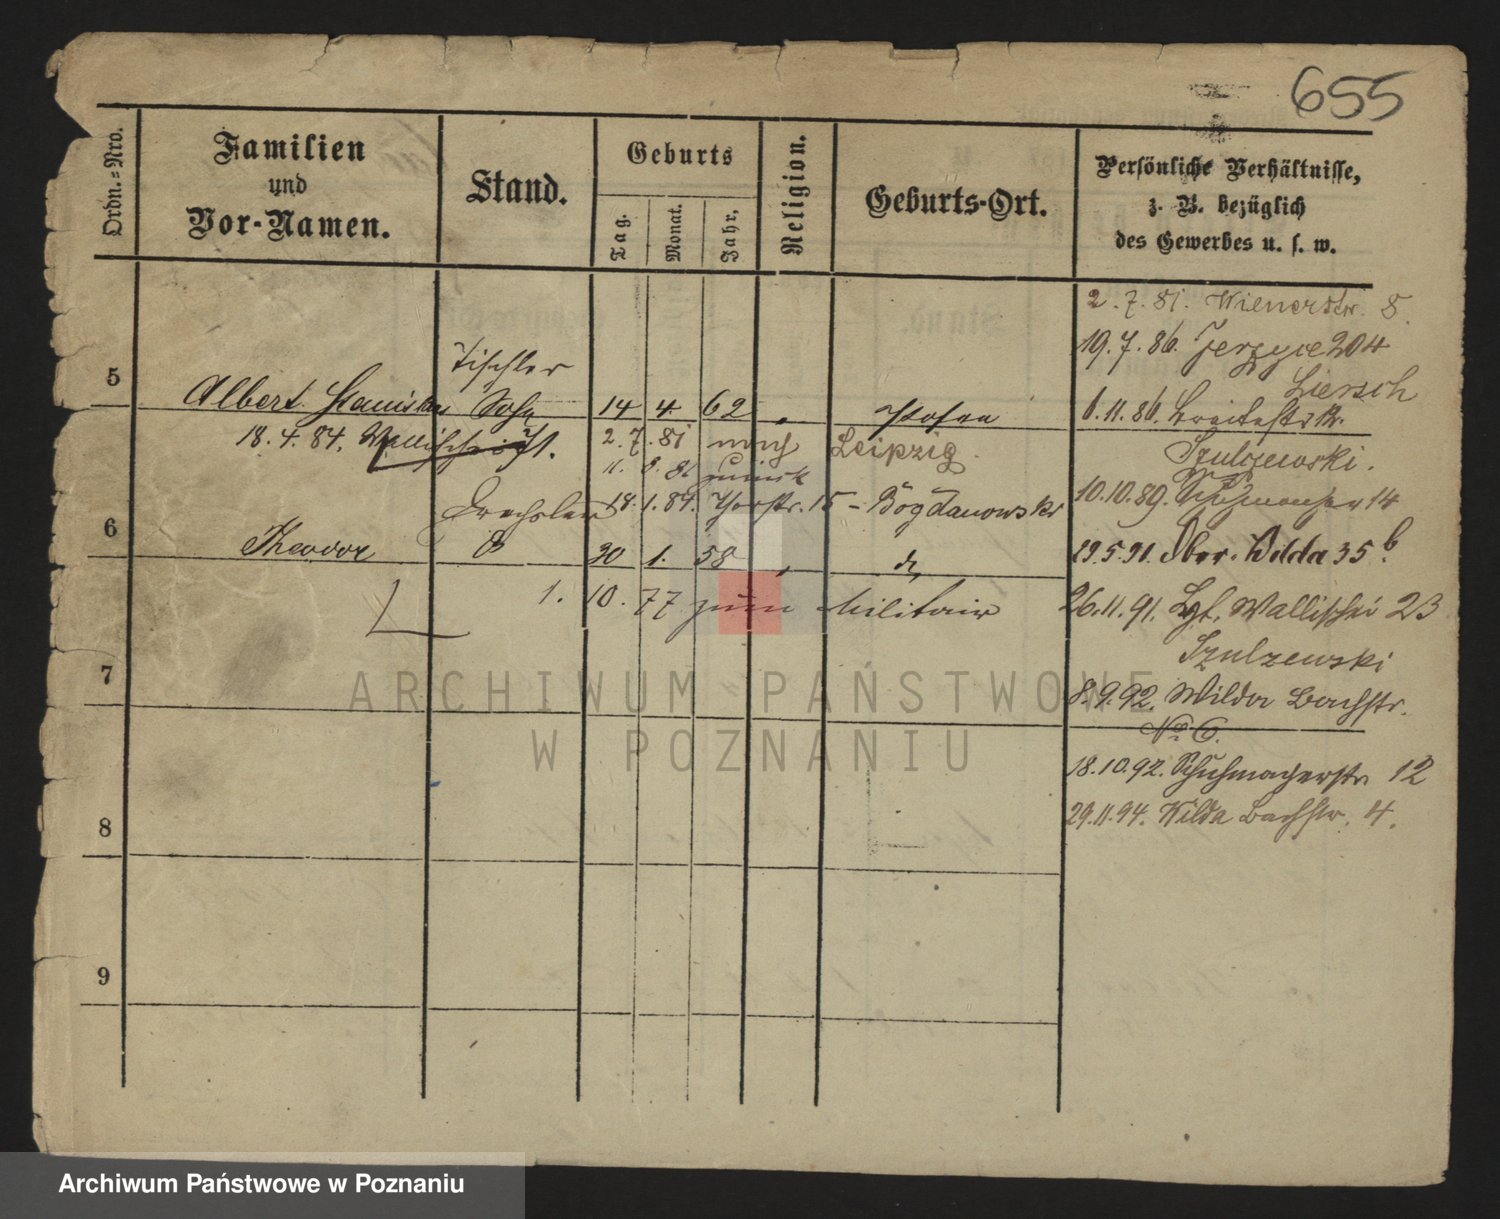 655
Ordn.=Nro.
Familien
und
Vor-Namen.
Stand.
Geburts
Tag.
Monat.
Jahr.
Religion.
Geburts-Ort.
Persönliche Verhältnisse,
z. B. bezüglich
des Gewerbes u. s. w.
2.7.81. Wienerstr. 8.
19.7.86. Jerzyce 204
Liersch
5
Tischler
Albert Stanislaus Sohn 14 4 62 " Posen
6.11.86. Breitestr
18.4.84. Wallischei
2.7.81 nach Leipzig.
Szulczewski.
11. 8. 81 zurück
6
Drechsler
18.1.84. Thorstr. 15 - Bogdanowski
10.10.89. 14
Theodor 30 1. 58 "
29.5.91. Ober. Wilda 35 b
1. 10. 77 zum Militair
26.11.91. Wallischei 23
Szulzewski
7
8.9.92. Wilda Bachstr.
No 6.
18.10.92. Schuhmacherstr 12
8
29.11.94. Wilda Bachstr. 4.
9
ARCHIWUM PAŃSTWOWE
W POZNANIU
Archiwum Państwowe w Poznaniu